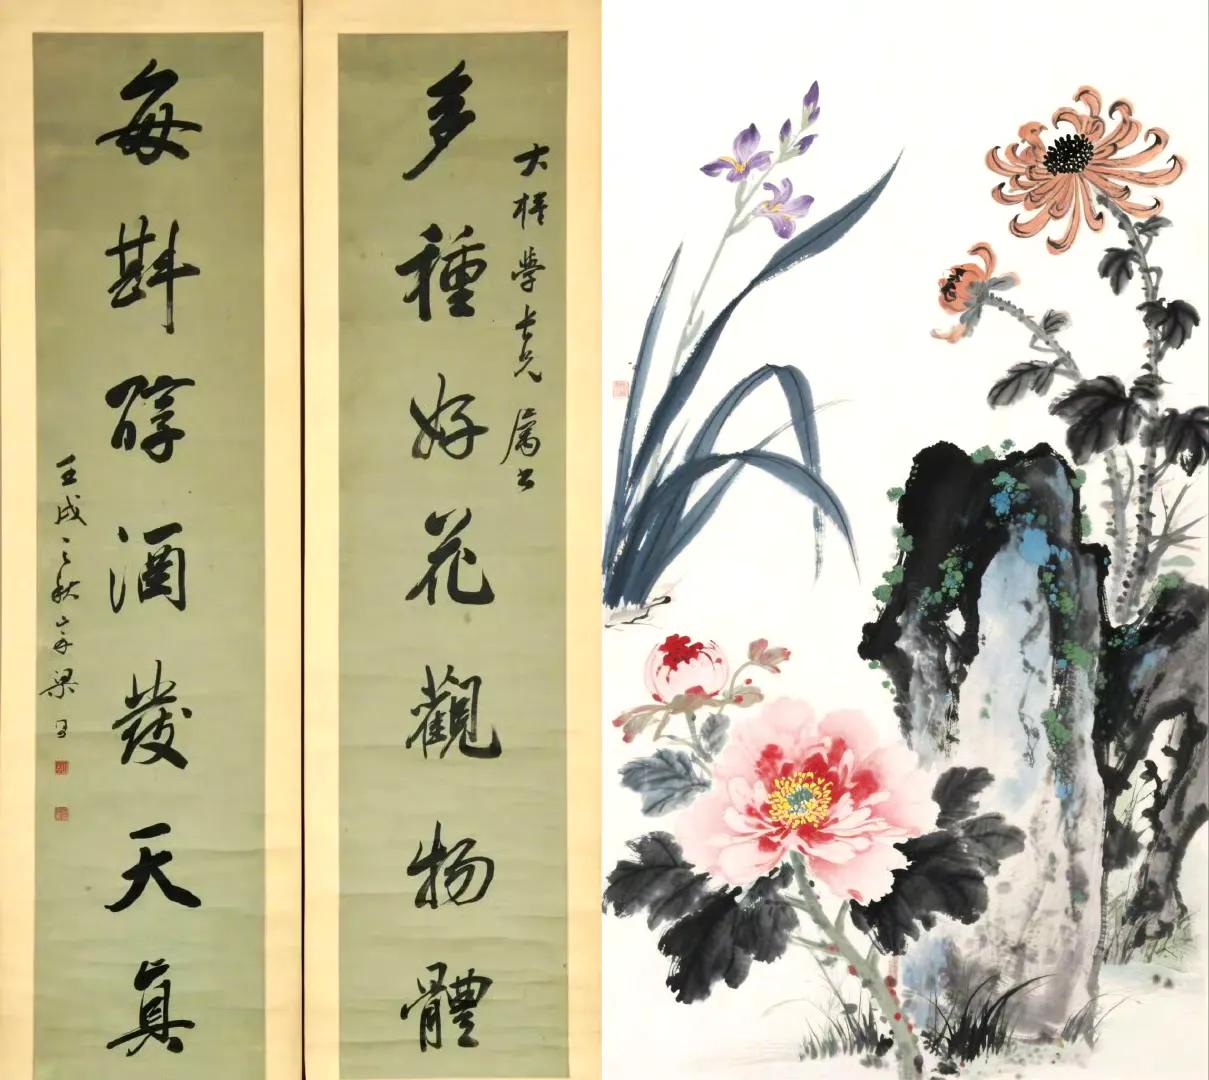 大學長兄屬書
多種好花觀物體
每斟醇酒發天真
壬戌之秋梁